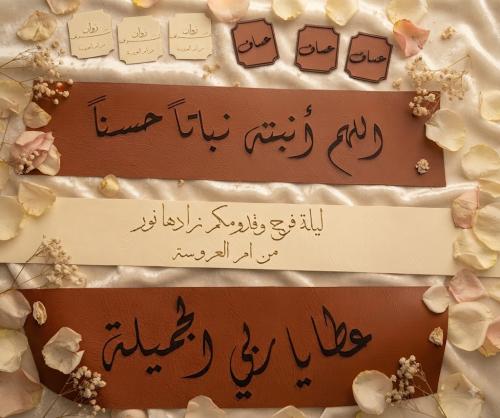 عساف
عساف
عساف
روان
روان
روان
اللهم أنبته نباتاً حسناً
ليلة فرح وقدومكم زادها نور
من ام العروسة
عطايا ربي الجميلة